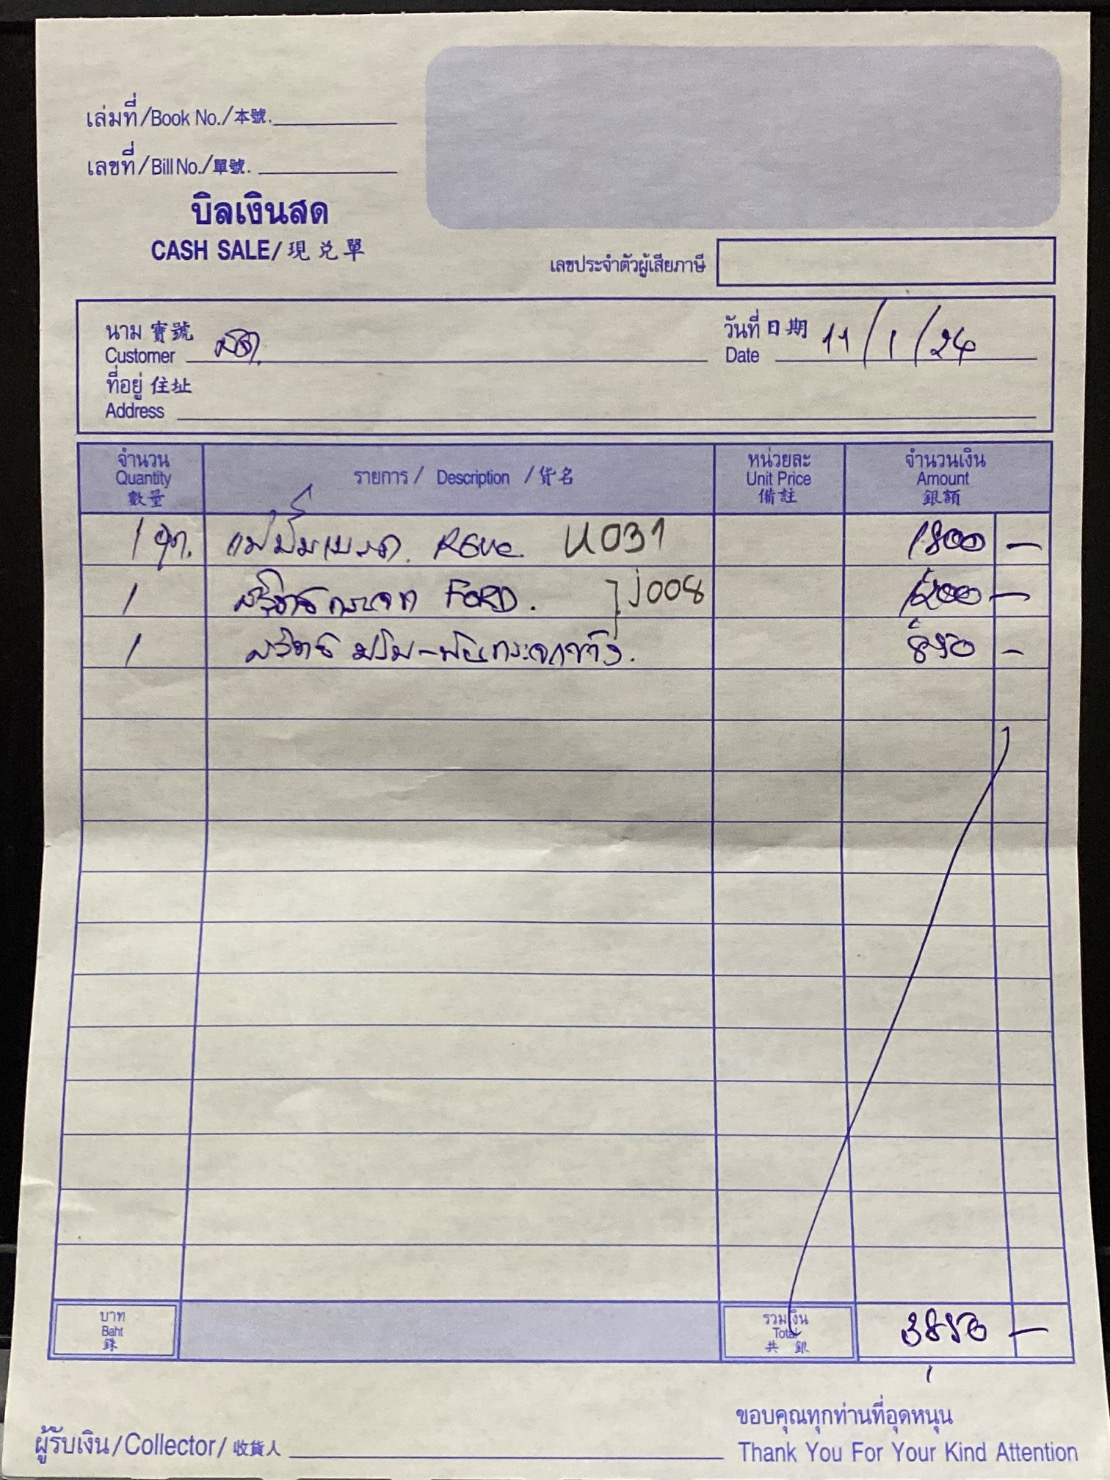 เล่มที่/Book No./本號.
เลขที่/Bill No./單號.
บิลเงินสด
CASH SALE/現兌單
เลขประจำตัวผู้เสียภาษี
นาม 寶號
Customer สด.
วันที่ 日期
Date 11/1/24
ที่อยู่ 住址
Address
จำนวน Quantity 數量
รายการ / Description / 貨名
หน่วยละ Unit Price 備註
จำนวนเงิน Amount 銀額
1 ชุด. แม่ปั๊มเบรค. U031 1800 —
1 สวิตช์กระจก FORD. J008 1200 —
1 สวิตช์ ปรับ-พับกระจกข้าง. 850 —
บาท Baht 銖
รวมเงิน Total 共銀
3850 —
ผู้รับเงิน/Collector/收貨人
ขอบคุณทุกท่านที่อุดหนุน
Thank You For Your Kind Attention